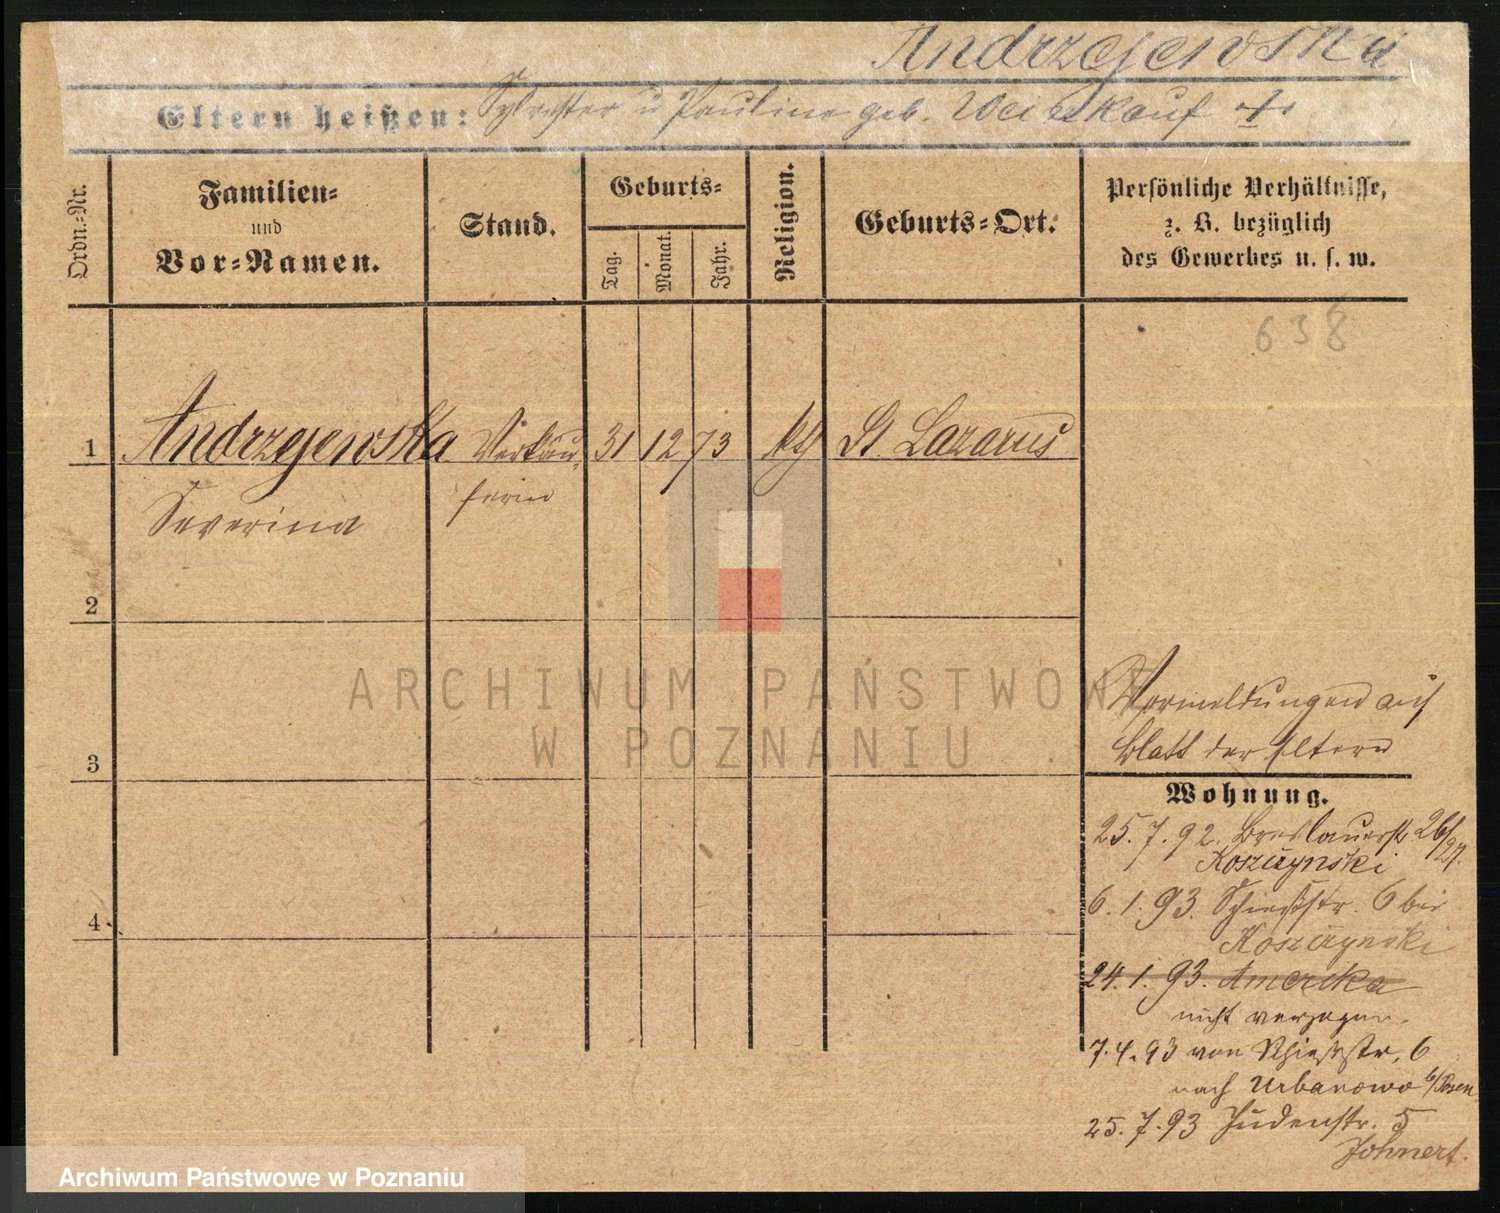 Andrzejewska
Eltern heißen: Sylvester u Pauline geb. Weinkauf
Ordn.=Nr.
Familien=
und
Vor=Namen.
Stand.
Geburts=
Tag.
Monat.
Jahr.
Religion.
Geburts=Ort.
Persönliche Verhältnisse,
z. B. bezüglich
des Gewerbes u. s. w.
638
1 Andrzejewska Verkäu= 31 12 73 kth St. Lazarus
Severina ferin
2
3
4
Vormeldungen auf
Blatt der Eltern
Wohnung.
25.7.92. Breslauerstr 26/27.
Koszczynski
6.1.93. Schießstr. 6 bei
Koszczynski
24.1.93. Amerika
nicht verzogen.
7.4.93 von Schießstr. 6
nach Urbanowo b/Posen
25.7.93 Judenstr. 5
Johnert.
ARCHIWUM PAŃSTWOWE
W POZNANIU
Archiwum Państwowe w Poznaniu